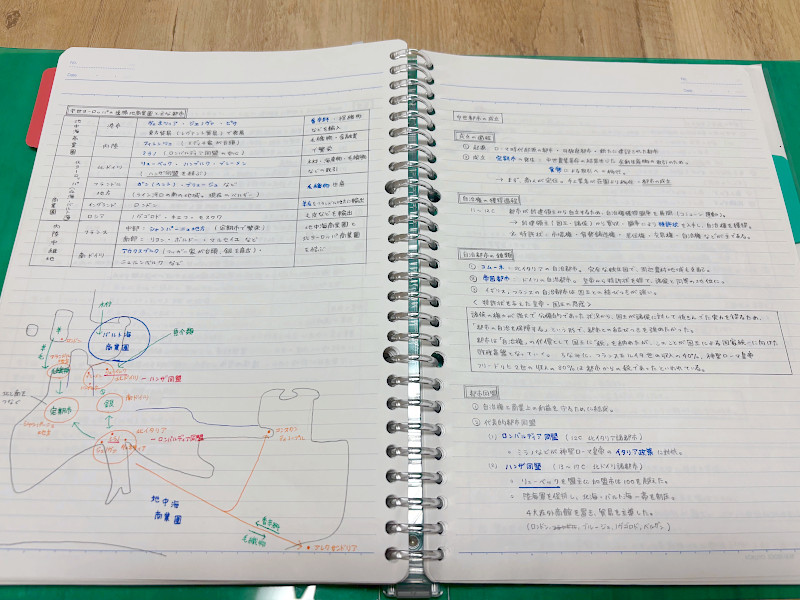 中世ヨーロッパの遠隔地商業圏と主な都市
地中海商業圏
港市
ヴェネツィア・ジェノヴァ・ピサ
東方貿易(レヴァント貿易)で繁栄
香辛料・絹織物
などを輸入
内陸
フィレンツェ(メディチ家が台頭)
ミラノ(ロンバルディア同盟の中心)
毛織物・金融業
で繁栄
北ドイツ
リューベック・ハンブルク・ブレーメン
(ハンザ同盟を結ぶ)
木材・海産物・毛織物
などの取引
フランドル
地方
ガン(ヘント)・ブリュージュなど
毛織物生産
イングランド
ロンドン
羊毛をフランドル地方に輸出
ロシア
ノヴゴロド・キエフ・モスクワ
毛皮などを輸出
内陸中継地
フランス
中部:シャンパーニュ地方(定期市で繁栄)
南部:リヨン・ボルドー・マルセイユなど
地中海商業圏と
北ヨーロッパ商業圏
を結ぶ
南ドイツ
アウクスブルク(フッガー家が台頭、銀を産出)
ニュルンベルクなど
バルト海
商業圏
羊毛
生活必需品
北ドイツ
→ハンザ同盟
北と南を
つなぐ
定期市
シャンパーニュ
地方
銀
南ドイツ
北イタリア
→ロンバルディア同盟
ミラノ
ジェノヴァ
コンスタン
ティノープル
地中海
商業圏
香辛料
毛織物
アレクサンドリア
中世都市の成立
成立の過程
① 起源:ローマ時代起源の都市・司教座都市・新たに建設された都市
② 成立
→まず、商人が定住。手工業者が各国より移動・都市の成立
自治権の獲得過程
11〜12C 都市が封建領主から自立するため、自治権獲得闘争を展開(コミューン運動)。
→封建領主(国王・諸侯)から買収・闘争により特許状を入手し、自治権を獲得。
自治都市の種類
① コムーネ:北イタリアの自治都市。完全な独立国で、周辺農村も支配する。
② 帝国都市:ドイツの自治都市。皇帝から特許状を得て、諸侯と同等の地位に。
③ イギリス、フランスの自治都市は国王との結びつきが強い。
<特許状を与えた皇帝・国王の態度>
「都市の自治を保障する」という形で、都市との結びつきを強めたがった。
都市は「自治権」の代償として国王に「税」を納めるが、このことが国王による国家統一に向けた
財政基盤となっていく。ちなみに、フランス王ルイ9世の収入の90%、神聖ローマ皇帝
フリードリヒ2世の収入の80%は都市からの税であったといわれている。
都市同盟
① 自治権と商業上の利益を守るために結成。
② 代表的都市同盟
(1) ロンバルディア同盟(12C 北イタリア諸都市)
○ミラノなどが神聖ローマ皇帝のイタリア政策に対抗。
(2) ハンザ同盟(13〜17C 北ドイツ諸都市)
○リューベックを盟主に加盟市は100を越えた。
○陸海軍を保持し、北海・バルト海一帯を制圧。
4大在外商館を置き、貿易を支配した。
(ロンドン、ブルージュ、ノヴゴロド、ベルゲン)